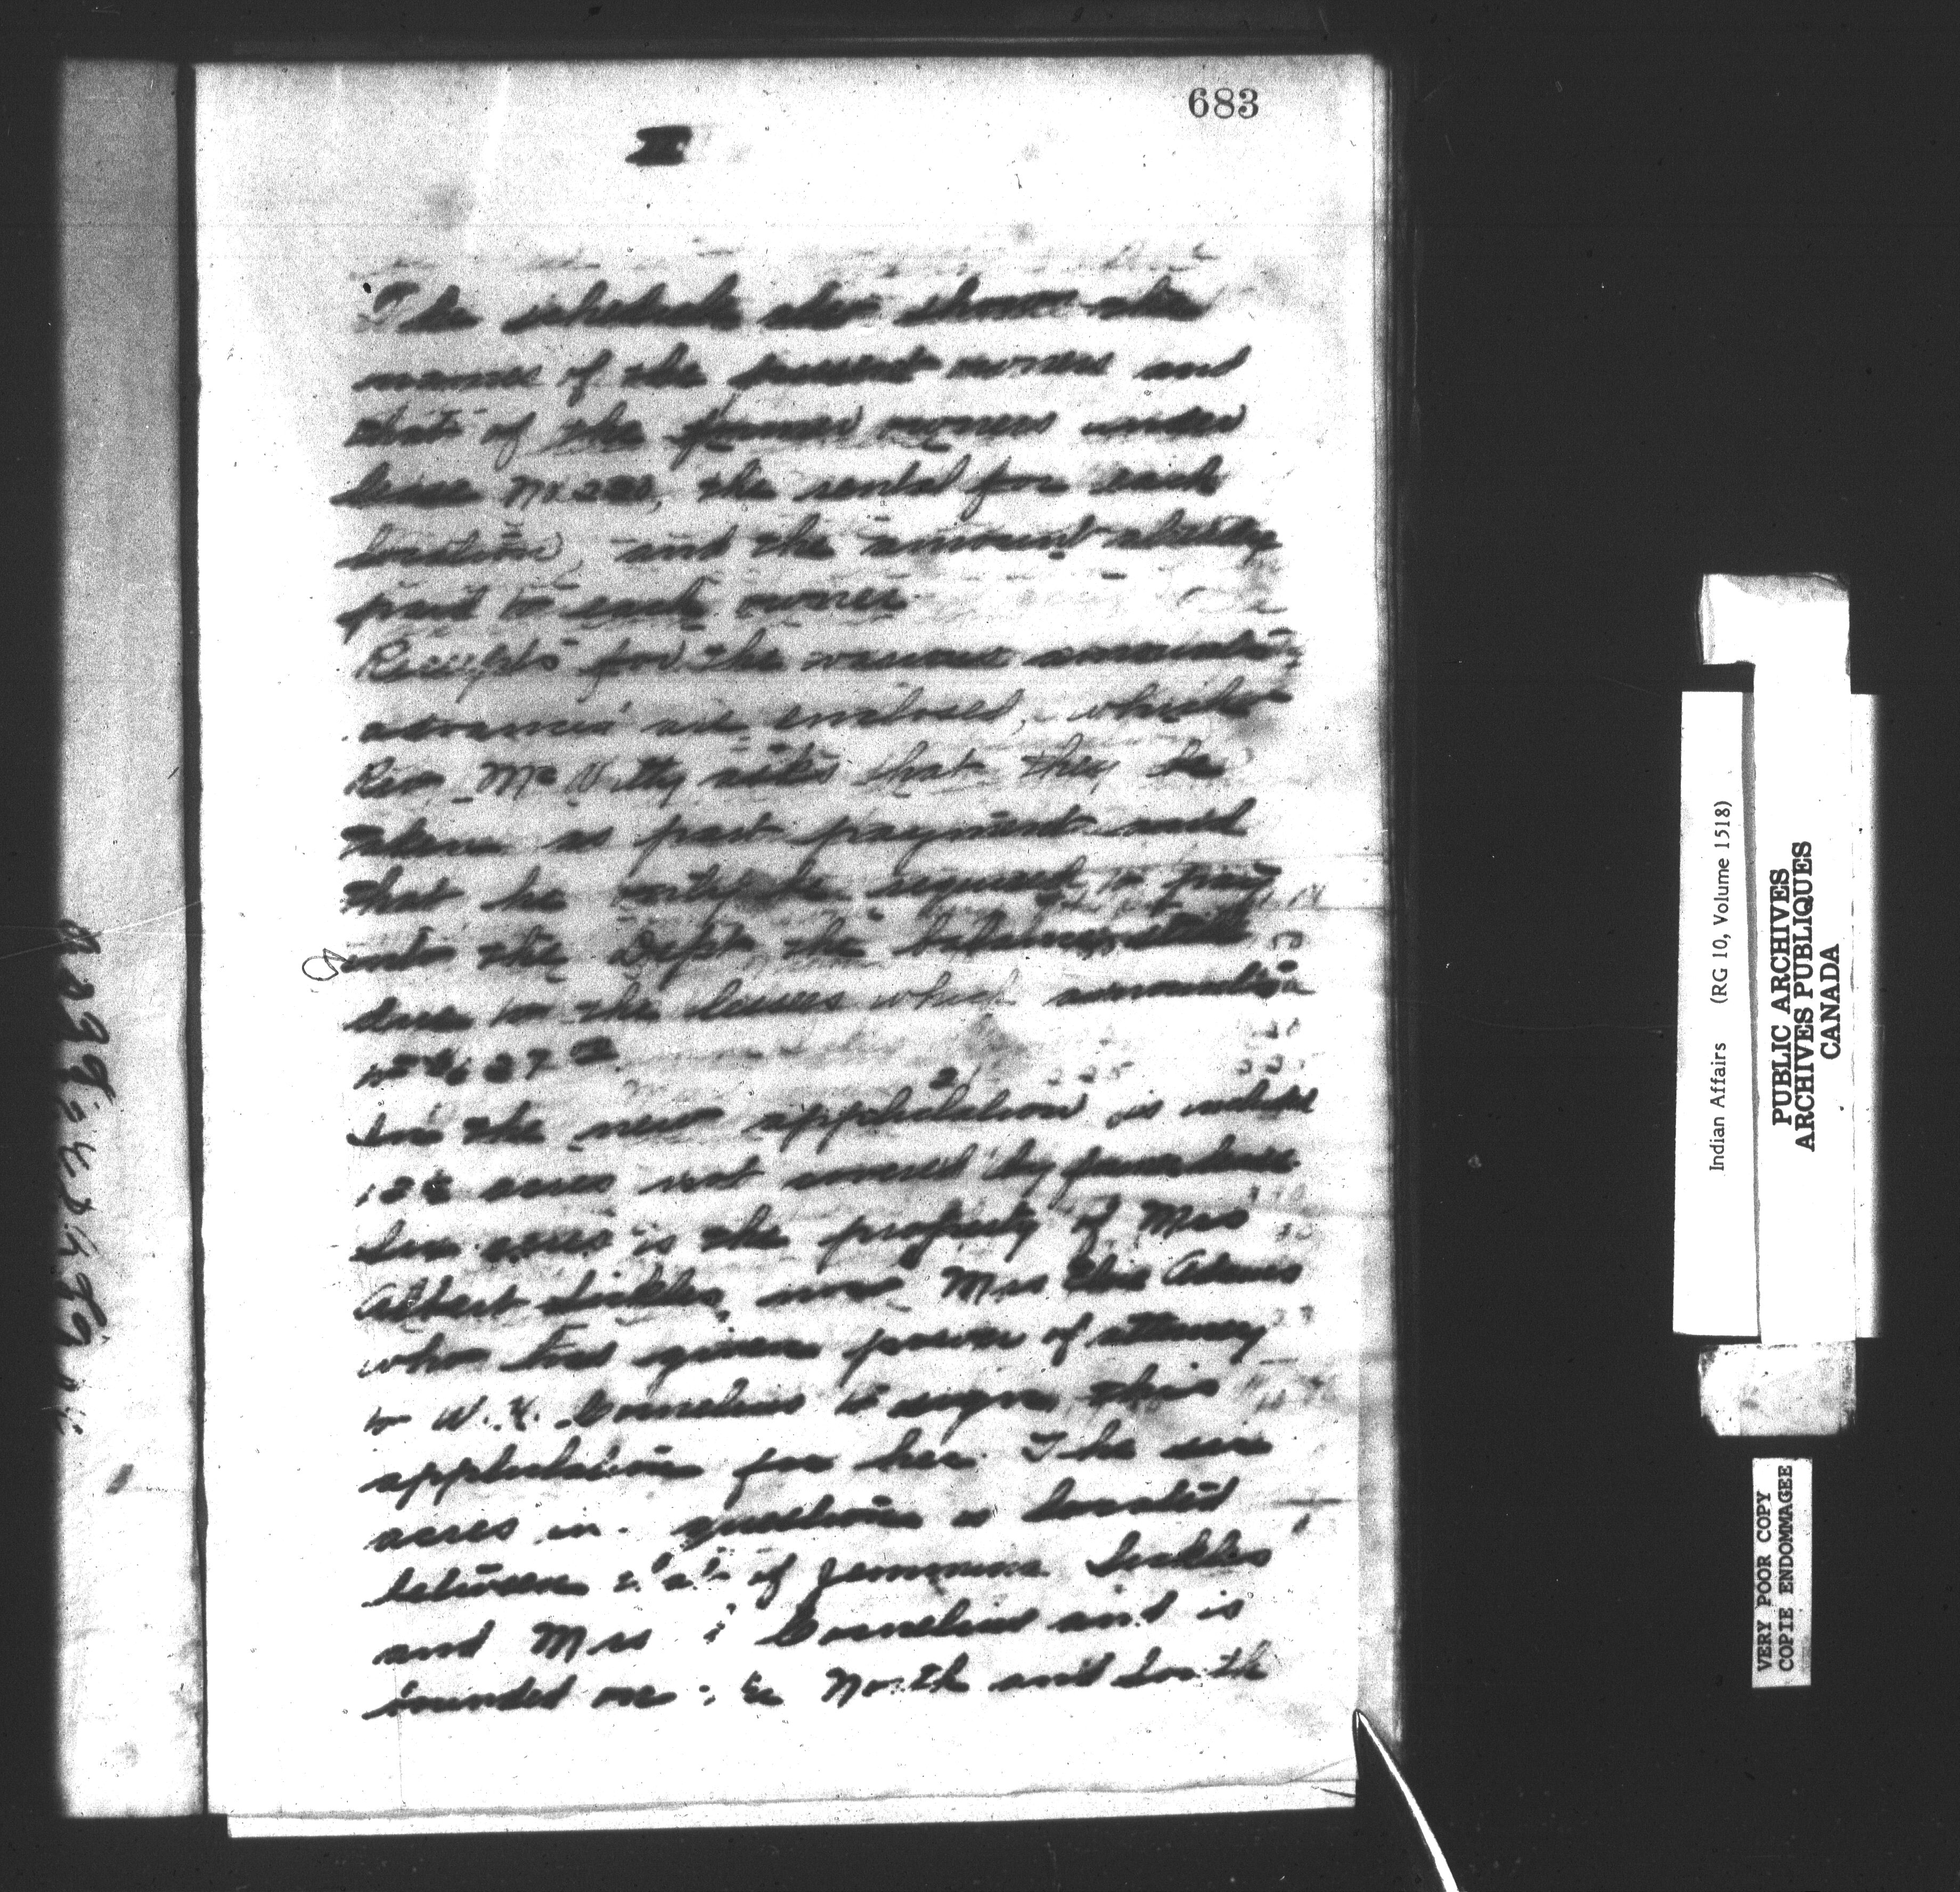 683
II
The schedule also shows the
names of the present owners and
that of the former owners under
lease No. the rental for each
location, and the amount already
paid to each owner
Receipts for the various amounts
advanced are enclosed, which
Rev McVitty asks that they be
taken as part payment and
that he only be required to pay
into the Dept the balance still
due to the lessees which amounts
to
In the new application is
acres not covered by lease
Six acres is the property of Mrs
Albert Sickles, now Mrs Adams
who has given power of attorney
to W. K. Cornelius to sign this
application for her. The six
acres in question is located
between of Jemmima Sickles
and Mrs Cornelius and is
bounded on North and South
Indian Affairs (RG 10, Volume 1518)
PUBLIC ARCHIVES
ARCHIVES PUBLIQUES
CANADA
VERY POOR COPY
COPIE ENDOMMAGEE